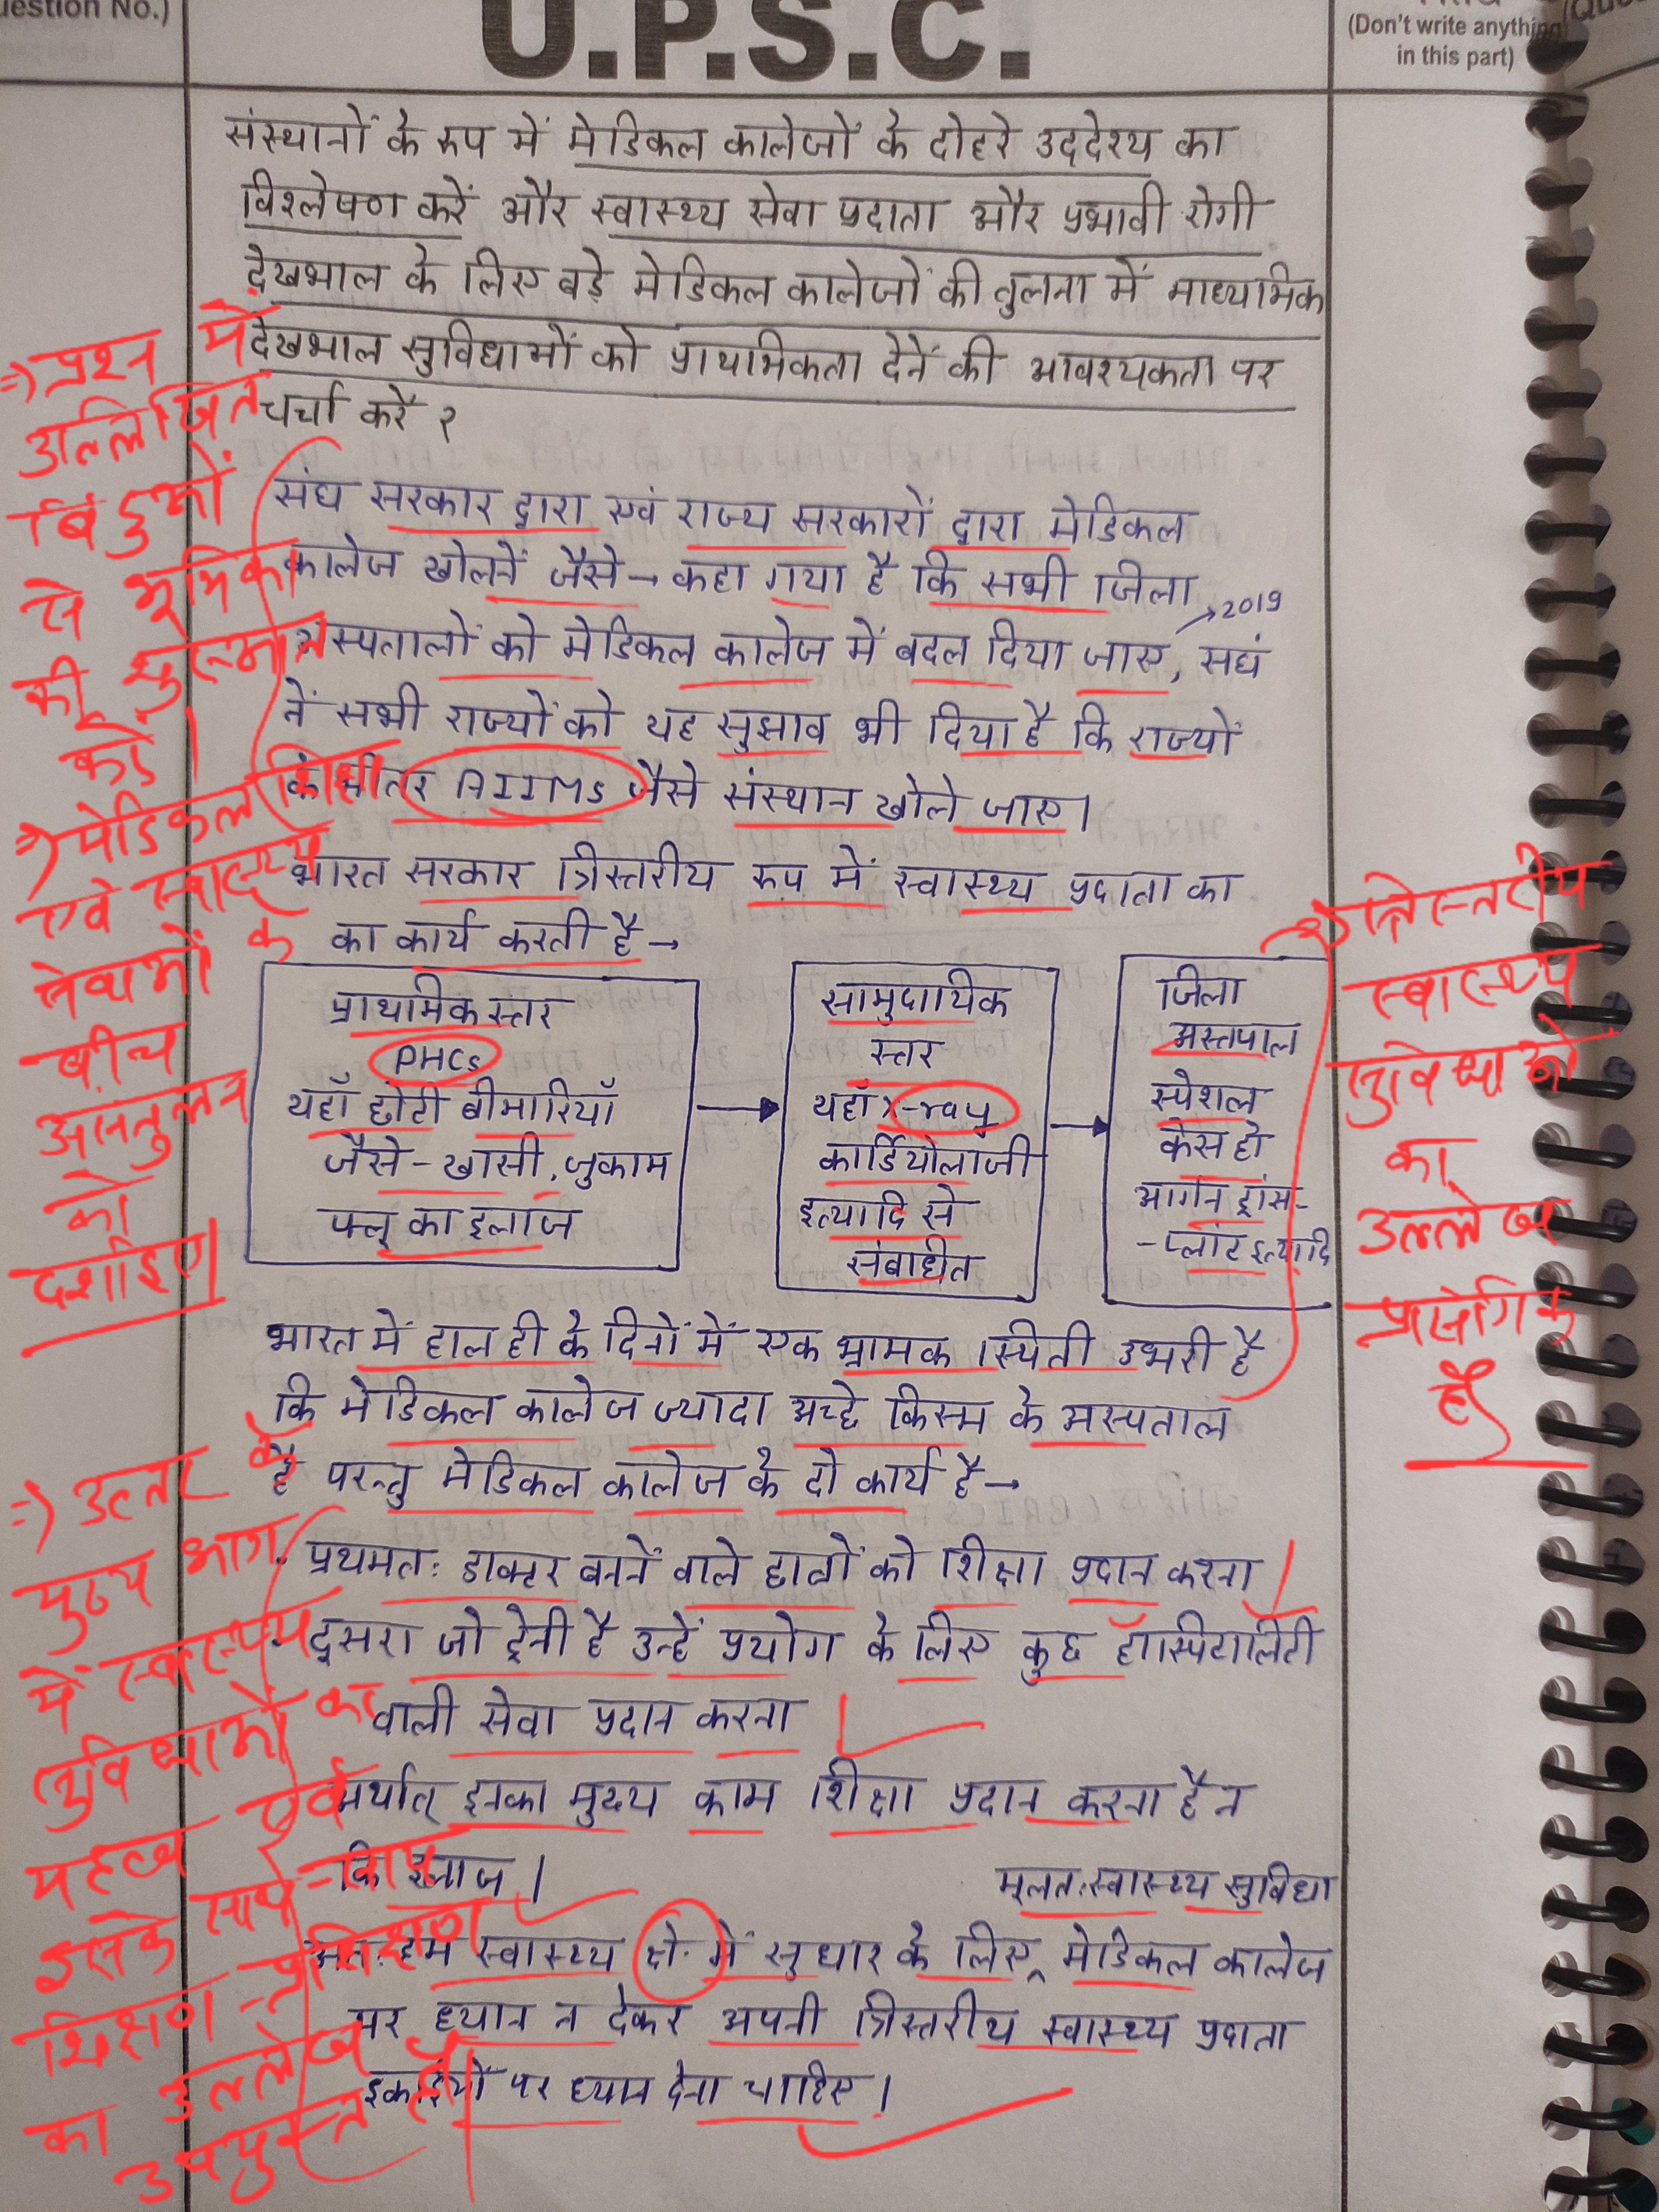 uestion No.)
U.P.S.C.
(Don't write anything
in this part)
(Que
संस्थानों के रुप में मेडिकल कालेजों के दोहरे उददेश्य का
विश्लेषण करें और स्वास्थ्य सेवा प्रदाता और प्रभावी रोगी
देखभाल के लिए बड़े मेडिकल कालेजों की तुलना में माध्यमिक
देखभाल सुविधाओं को प्राथमिकता देनें की आवश्यकता पर
चर्चा करें ?
संघ सरकार द्वारा एवं राज्य सरकारों द्वारा मेडिकल
कालेज खोलनें जैसे → कहा गया है कि सभी जिला
→ 2019
अस्पतालों को मेडिकल कालेज में बदल दिया जाए, सघं
नें सभी राज्यों को यह सुझाव भी दिया है कि राज्यों
के भीतर AIIMS जैसे संस्थान खोले जाए।
भारत सरकार त्रिस्तरीय रुप में स्वास्थ्य प्रदाता का
का कार्य करती है →
प्राथमिक स्तर
PHCs
यहाँ छोटी बीमारियाँ
जैसे - खासी, जुकाम
फ्लू का इलाज
सामुदायिक
स्तर
यहाँ X-ray
कार्डियोलाजी
इत्यादि से
संबाधीत
जिला
अस्तपाल
स्पेशल
केस हो
आर्गन ट्रांस-
-प्लांट इत्यादि
भारत में हाल ही के दिनों में एक भ्रामक स्थिती उभरी है
कि मेडिकल कालेज ज्यादा अच्छे किस्म के अस्पताल
है परन्तु मेडिकल कालेज के दो कार्य है →
प्रथमत: डाक्टर बननें वाले छात्रों को शिक्षा प्रदान करना
दूसरा जो ट्रेनी है उन्हें प्रयोग के लिए कुछ हॉस्पिटालिटी
वाली सेवा प्रदान करना
अर्थात् इनका मुख्य काम शिक्षा प्रदान करना है न
कि इलाज।
मूलत: स्वास्थ्य सुविधा
अत: हम स्वास्थ्य क्षे. में सुधार के लिए मेडिकल कालेज
पर ध्यान न देकर अपनी त्रिस्तरीय स्वास्थ्य प्रदाता
इकाईयों पर ध्यान देना चाहिए।
⇒ प्रश्न में
उल्लिखित
बिंदुओं
से भूमिका
की शुरुआत
करें।
⇒ मेडिकल शिक्षा
एवं स्वास्थ्य
सेवाओं के
बीच
असंतुलन
को
दर्शाइए।
⇒ त्रिस्तरीय
स्वास्थ्य
सुविधाओं
का
उल्लेख
प्रासंगिक
है
⇒ उत्तर के
मुख्य भाग
में स्वास्थ्य
सुविधाओं का
महत्व एवं
इसके साथ-साथ
शिक्षण-प्रशिक्षण
का उल्लेख
उपयुक्त है।